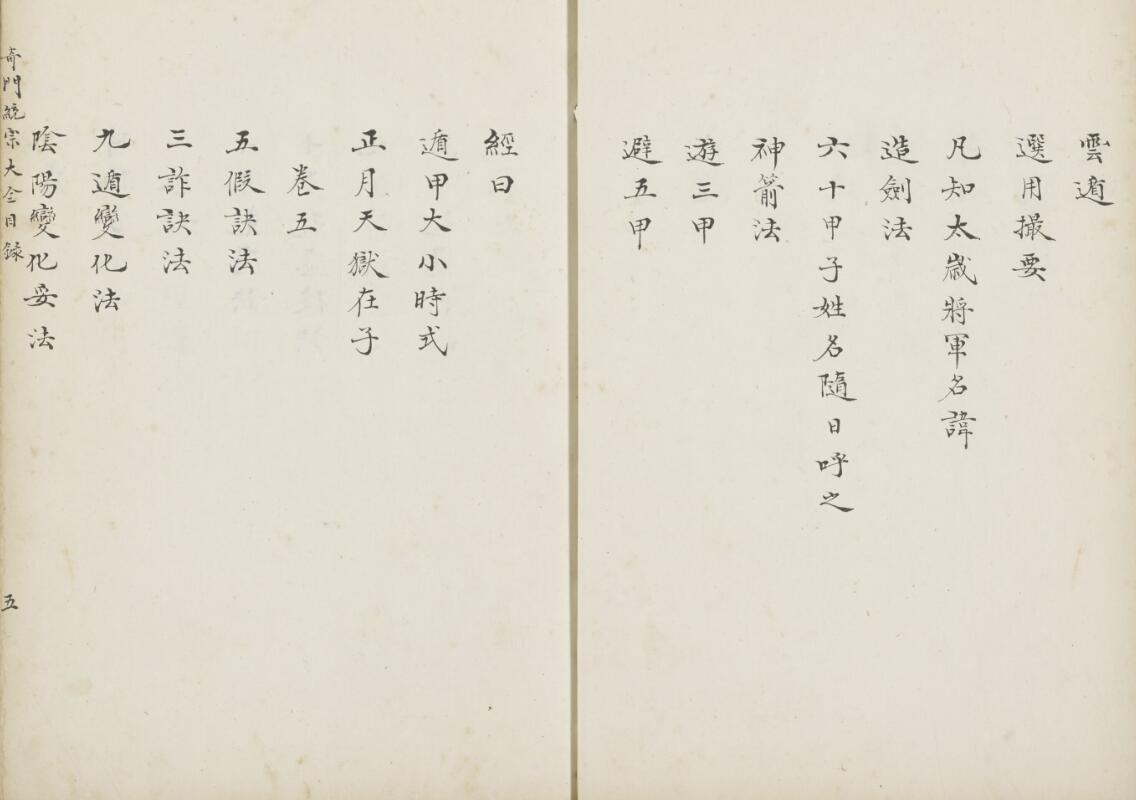 雲遁
選用撮要
凡知太歲將軍名諱
造劍法
六十甲子姓名隨日呼之
神箭法
遊三甲
避五甲
經曰
遁甲大小時式
正月天獄在子
卷五
五假訣法
三詐訣法
九遁變化法
陰陽變化妥法
奇門統宗大全目錄
五